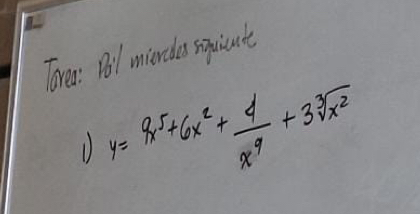 Tarea: Pa'l miercoles siguiente
1) y= 9x⁵+6x²+ 4/x⁹ + 3∛x²